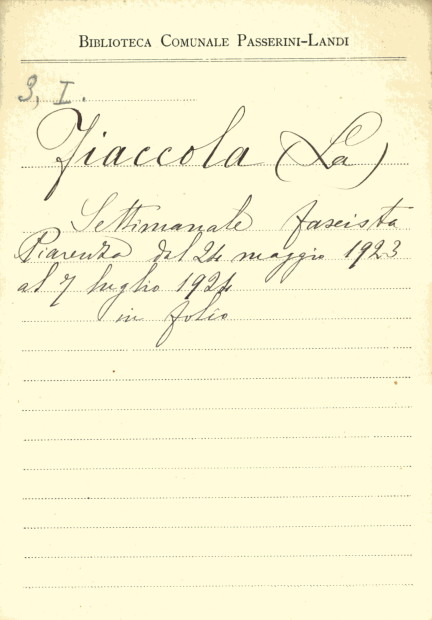 BIBLIOTECA COMUNALE PASSERINI-LANDI
3, I.
Fiaccola (La)
Settimanale fascista
Piacenza dal 24 maggio 1923
al 7 luglio 1924
in folio